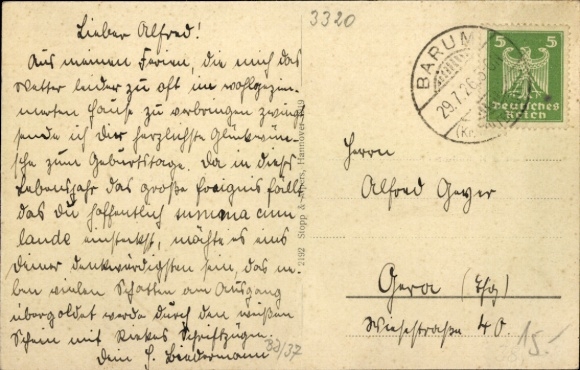 Lieber Alfred!
Aus meinen Ferien, die mich das
Wetter leider zu oft im wohlgezim-
merten Hause zu verbringen zwingt
sende ich dir herzlichste Glückwün-
sche zum Geburtstage. Da in dieses
Lebensjahr das große Ereignis fällt
das du hoffentlich summa cum
laude einsteckst, möchte es eins
deiner denkwürdigsten sein, das ne-
ben vielen Schatten am Ausgang
übergoldet werde durch den
Schein mit Schriftzügen.
Dein H. Biedermann
33/37
3320
2192 Stopp & Hannover
BARUM
29.7.26
5 5
Deutsches
Reich
Herrn
Alfred Geyer
Gera (Thg)
Wiesestraße 40.
15.-